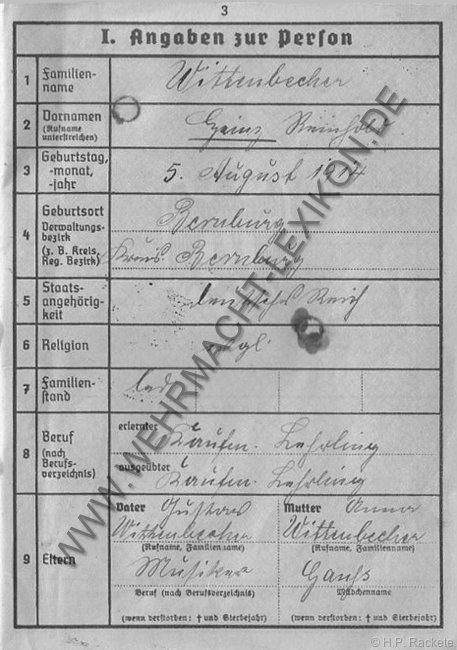 3
I. Angaben zur Person
1 Familien-name Wittenbecher
2 Vornamen (Rufname unterstreichen) Heinz Reinhold
3 Geburtstag, -monat, -jahr 5. August 1914
4 Geburtsort Verwaltungs-bezirk (z. B. Kreis, Reg. Bezirk) Bernburg
Kreis Bernburg
5 Staats-angehörig-keit deutsches Reich
6 Religion
7 Familien-stand led
8 Beruf (nach Berufs-verzeichnis)
erlernter Kaufm. Lehrling
ausgeübter Kaufm. Lehrling
9 Eltern
Vater Gustav
Wittenbecher
(Rufname, Familienname)
Musiker
Beruf (nach Berufsverzeichnis)
(wenn verstorben: † und Sterbejahr)
Mutter Anna
Wittenbecher
(Rufname, Familienname)
Mädchenname
(wenn verstorben: † und Sterbejahr)
WWW.WEHRMACHT-LEXIKON.DE
© H.P. Rackete